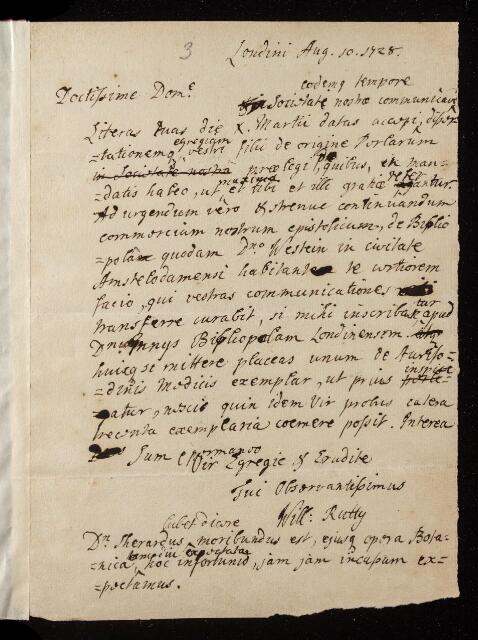 3
Londini Aug. 10. 1728.
Doctissime Dom.e
eodemq tempore
Societate nostræ communicavi
Literas tuas die X. Martii datas accepi, disser
egregiam
=tationemq, vestri filii de origine Porlarum
in Societate nostra prælegi, pro quibus, in man=
maximæ refer
=datis habeo, ut et tibi et illi gratiæ agantur.
Ad urgendum vero & strenue continuandum
commercium nostrum epistolicum, de Biblio
=pola quodam Dno Wetstein in civitate
Amstelodamensi habitante te certiorem
facio, qui vestras communicationes
transferre curabit, si mihi inscribatur apud
Dnum Innys Bibliopolam Londinensem.
huicq, se mittere placeas unum de
inspice
=dinis Medicis exemplar, ut prius
=atur, nescio quin idem Vir probus cætera
trecenta exemplaria coemere possit. Interea
permaneo
Sum Vir Egregie & Erudite
Tui Observantissimus
Will: Rutty
Dn. Sherardus moribundus est, ejusq, opera Bota=
tamdiu expectata
=nica, hoc infortunio, jam jam incassum ex=
=pectamus.